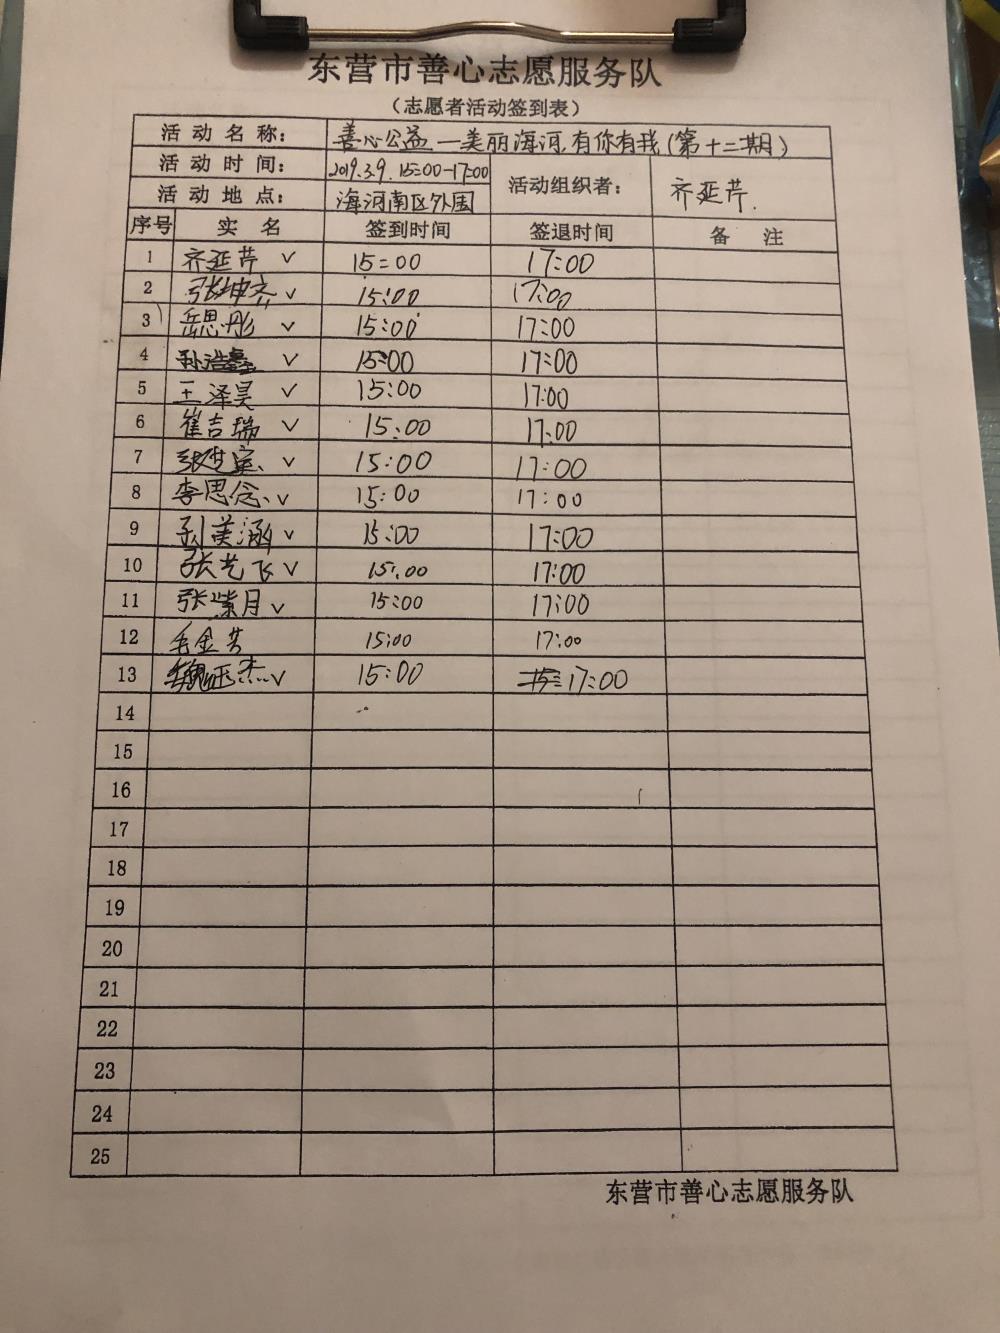 东营市善心志愿服务队
（志愿者活动签到表）
活动名称： 善心公益—美丽海河,有你有我(第十二期)
活动时间： 2019.3.9. 15:00-17:00 活动组织者： 齐延芹.
活动地点： 海河南区外围
序号 实名 签到时间 签退时间 备注
1 齐延芹 ✓ 15:00 17:00
2 张坤齐 ✓ 15:00 17:00
3 岳思彤 ✓ 15:00 17:00
4 孙浩鑫 ✓ 15:00 17:00
5 王泽昊 ✓ 15:00 17:00
6 崔吉瑞 ✓ 15:00 17:00
7 ✓ 15:00 17:00
8 李思念 ✓ 15:00 17:00
9 孙美涵 ✓ 15:00 17:00
10 张艺飞 ✓ 15:00 17:00
11 张紫月 ✓ 15:00 17:00
12 毛金芳 15:00 17:00
13 魏正杰 ✓ 15:00 17:00
14
15
16
17
18
19
20
21
22
23
24
25
东营市善心志愿服务队